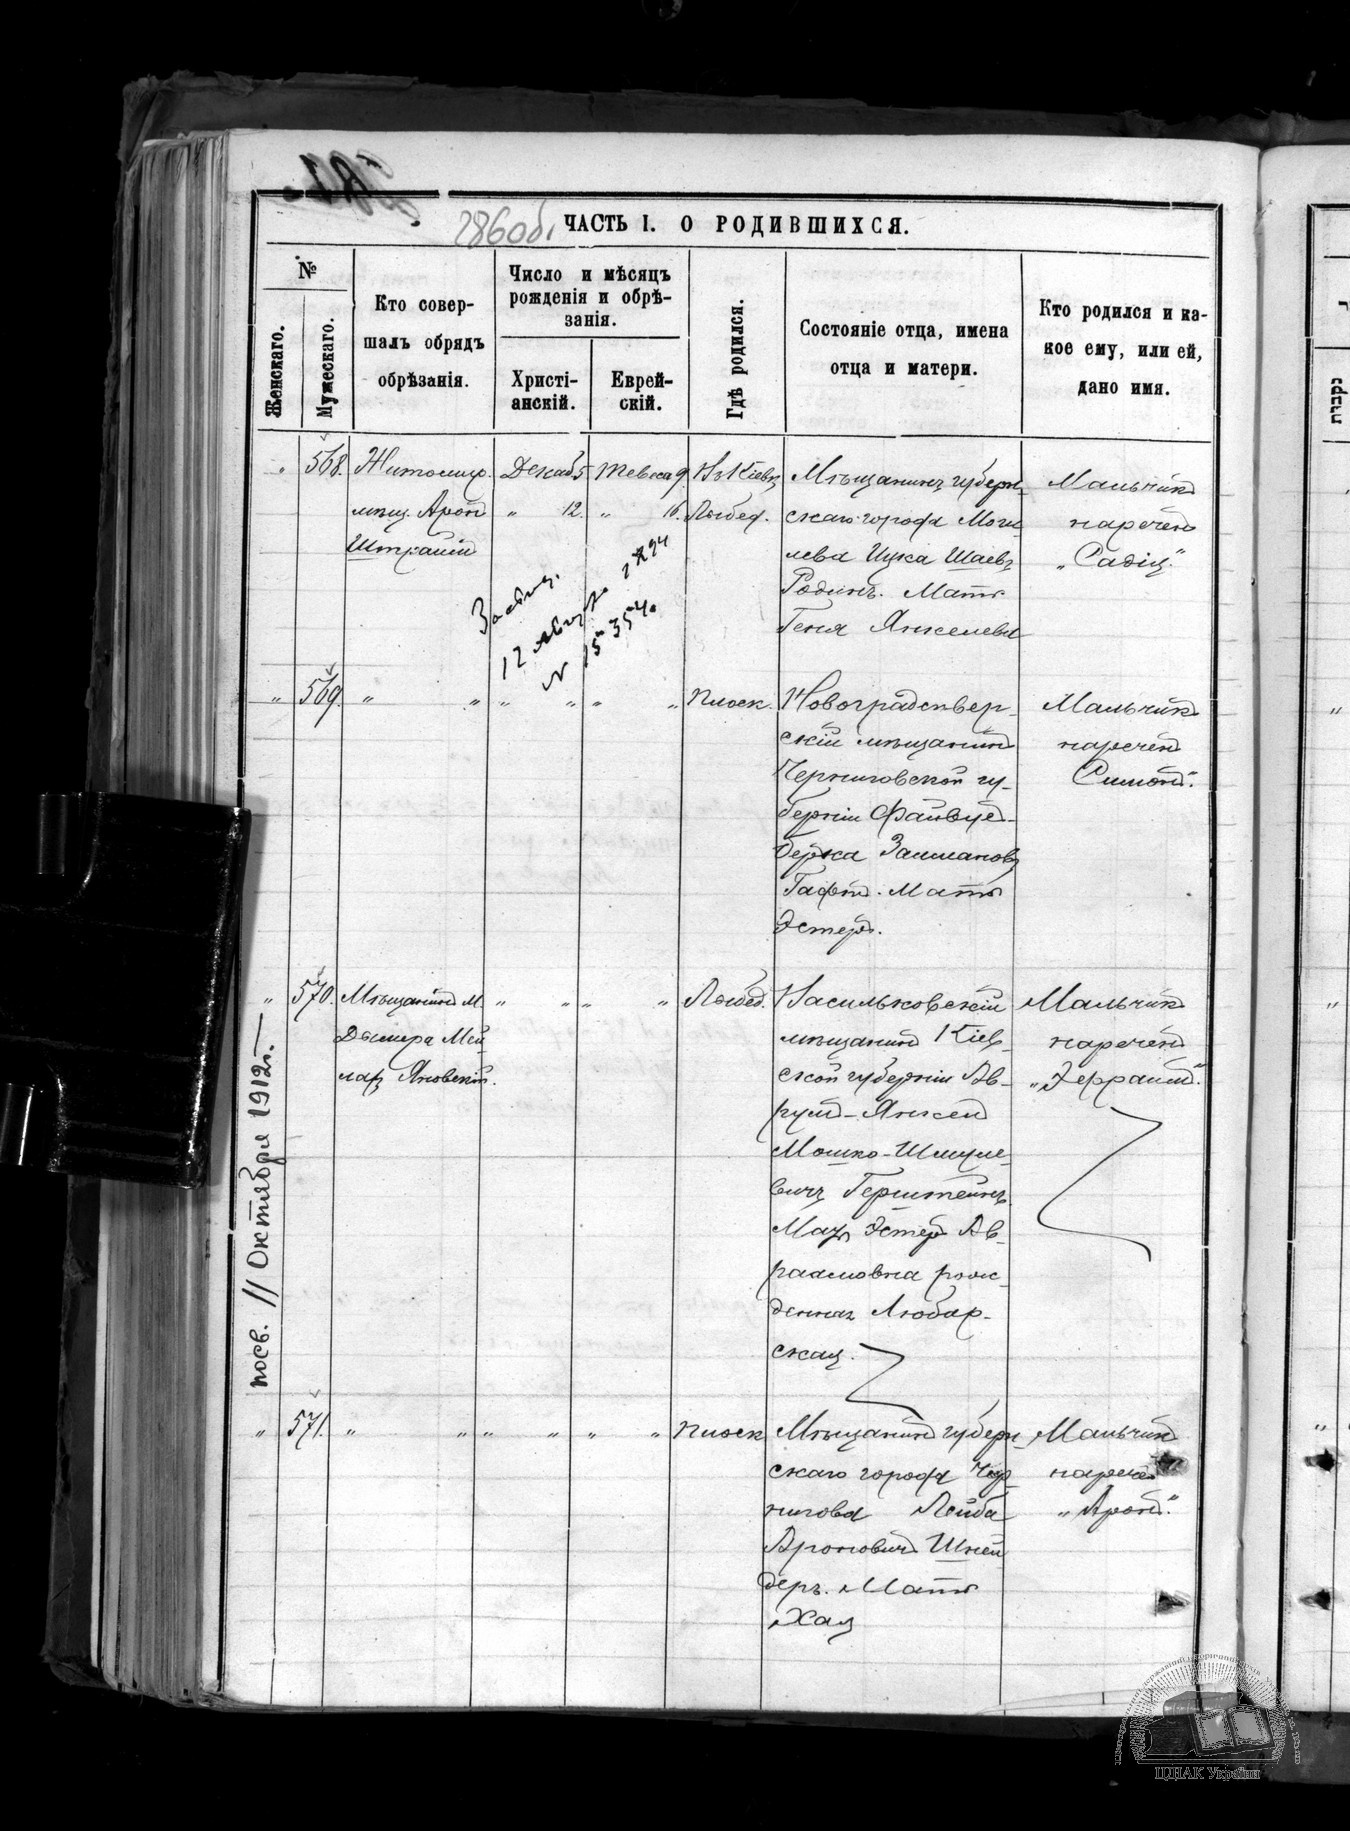 286об.
ЧАСТЬ I. О РОДИВШИХСЯ.
№
Женскаго.
Мужескаго.
Кто совер-
шалъ обрядъ
обрѣзанія.
Число и мѣсяцъ
рожденія и обрѣ-
занія.
Христі-
анскій.
Еврей-
скій.
Гдѣ родился.
Состояніе отца, имена
отца и матери.
Кто родился и ка-
кое ему, или ей,
дано имя.
" 568.
Житомир.
мѣщ. Арон
Декаб. 5
" 12.
Тевеса 9.
" 16.
Въ Кіевѣ
Лыбед.
Мѣщанинъ губерн-
скаго города Моги-
лева Ицка Шаевъ
Родинъ. Мать
Геня Янкелева
Мальчикъ
нареченъ
"Садія"
12
№ 15354.
" 569.
" "
" "
" "
Плоск.
Новоградсѣвер-
скій мѣщанинъ
Черниговской гу-
берніи Файвуш-
Берка Залмановъ
Мать
Эстеръ.
Мальчикъ
нареченъ
Симонъ."
" 570.
Мѣщанинъ м.
Дымера Мей-
лахъ Яновскій.
" "
" "
Лыбед.
Васильковскій
мѣщанинъ Кіев-
ской губерніи Ав-
румъ-Янкель
Мошко-Шмуле-
вичъ Герштейнъ
Мать Эстеръ Ав-
раамовна рож-
денная Любар-
ская.
Мальчикъ
нареченъ
"Эфраимъ."
посв. 11 Октября 1912г.
" 571.
" "
" "
" "
Плоск
Мѣщанинъ губерн-
скаго города Чер-
нигова Лейба
Ароновичъ Шней-
деръ. Мать
Хая
Мальчикъ
нареченъ
"Аронъ."
ЦДІАК України